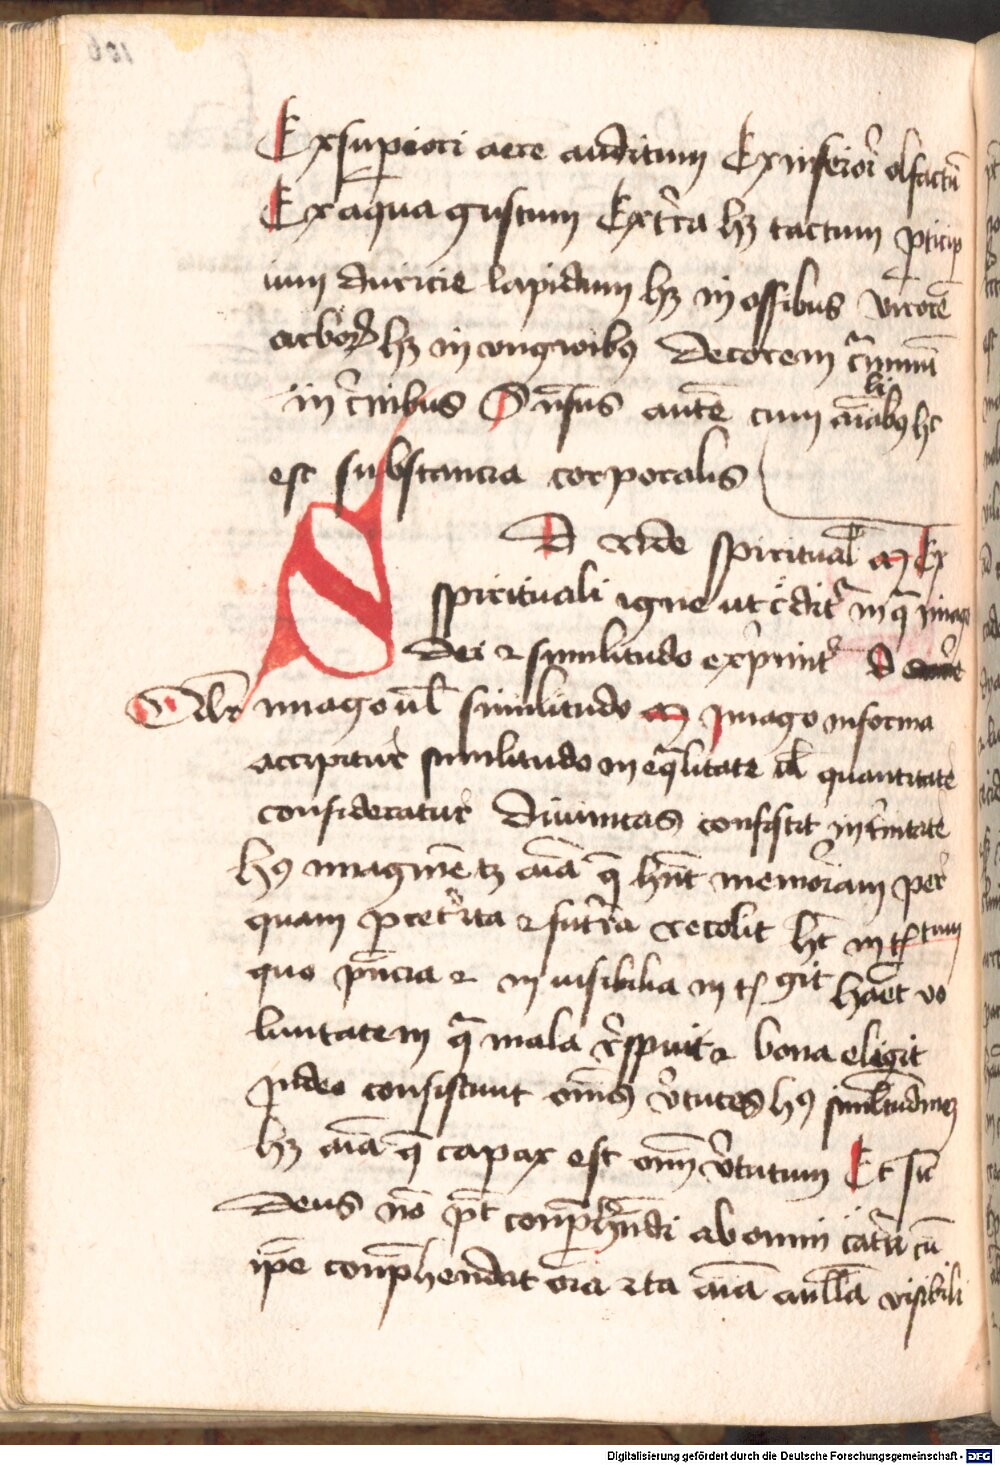 Ex superiori aere auditum Ex inferiōr olfactū
Ex aqua gustum Ex t̄ra hꝫ tactum ꝑticip
ium duricie lapidum hꝫ in ossibus virorē
arborꝝ hꝫ in ungwibꝰ Decorem g̾minū
in c̾nibus Sn̄sus autē cum aīalibꝰ hͨ
est substancia corporalis
D vnde spiritual̄ M Ex
spirituali igne ut c̾dit᷑ in q̄ imago
Dei ⁊ similitudo exp̾mit᷑ D
Qualꝰ imago ul̄ similitudo M Imago in forma
accipitur similitudo in eq̄litate ul̄ quantitate
consideratur Diuinitas consistit in t̾nitate
hꝰ imaginē tꝫ aīa q̄ hn̄t memoriam per
quam p̄terita ⁊ futura recolit hꝫ intꝭtum
quo p̄ncia ⁊ inuisibilia intꝭgit habet vo
luntatem q̄ mala respuit ⁊ bona eligit
In deo consistunt om̄s v̾tutes hꝰ similitudinēꝫ
hꝫ aīa q̄ capax est om̄ v̾tutum Et sic̄
deus nō pt̄ conp̄hendi ab omni c̾atura cū
ip̄e conp̄hendat om̄ia ita aīa a nulla visibili
Digitalisierung gefördert durch die Deutsche Forschungsgemeinschaft - DFG